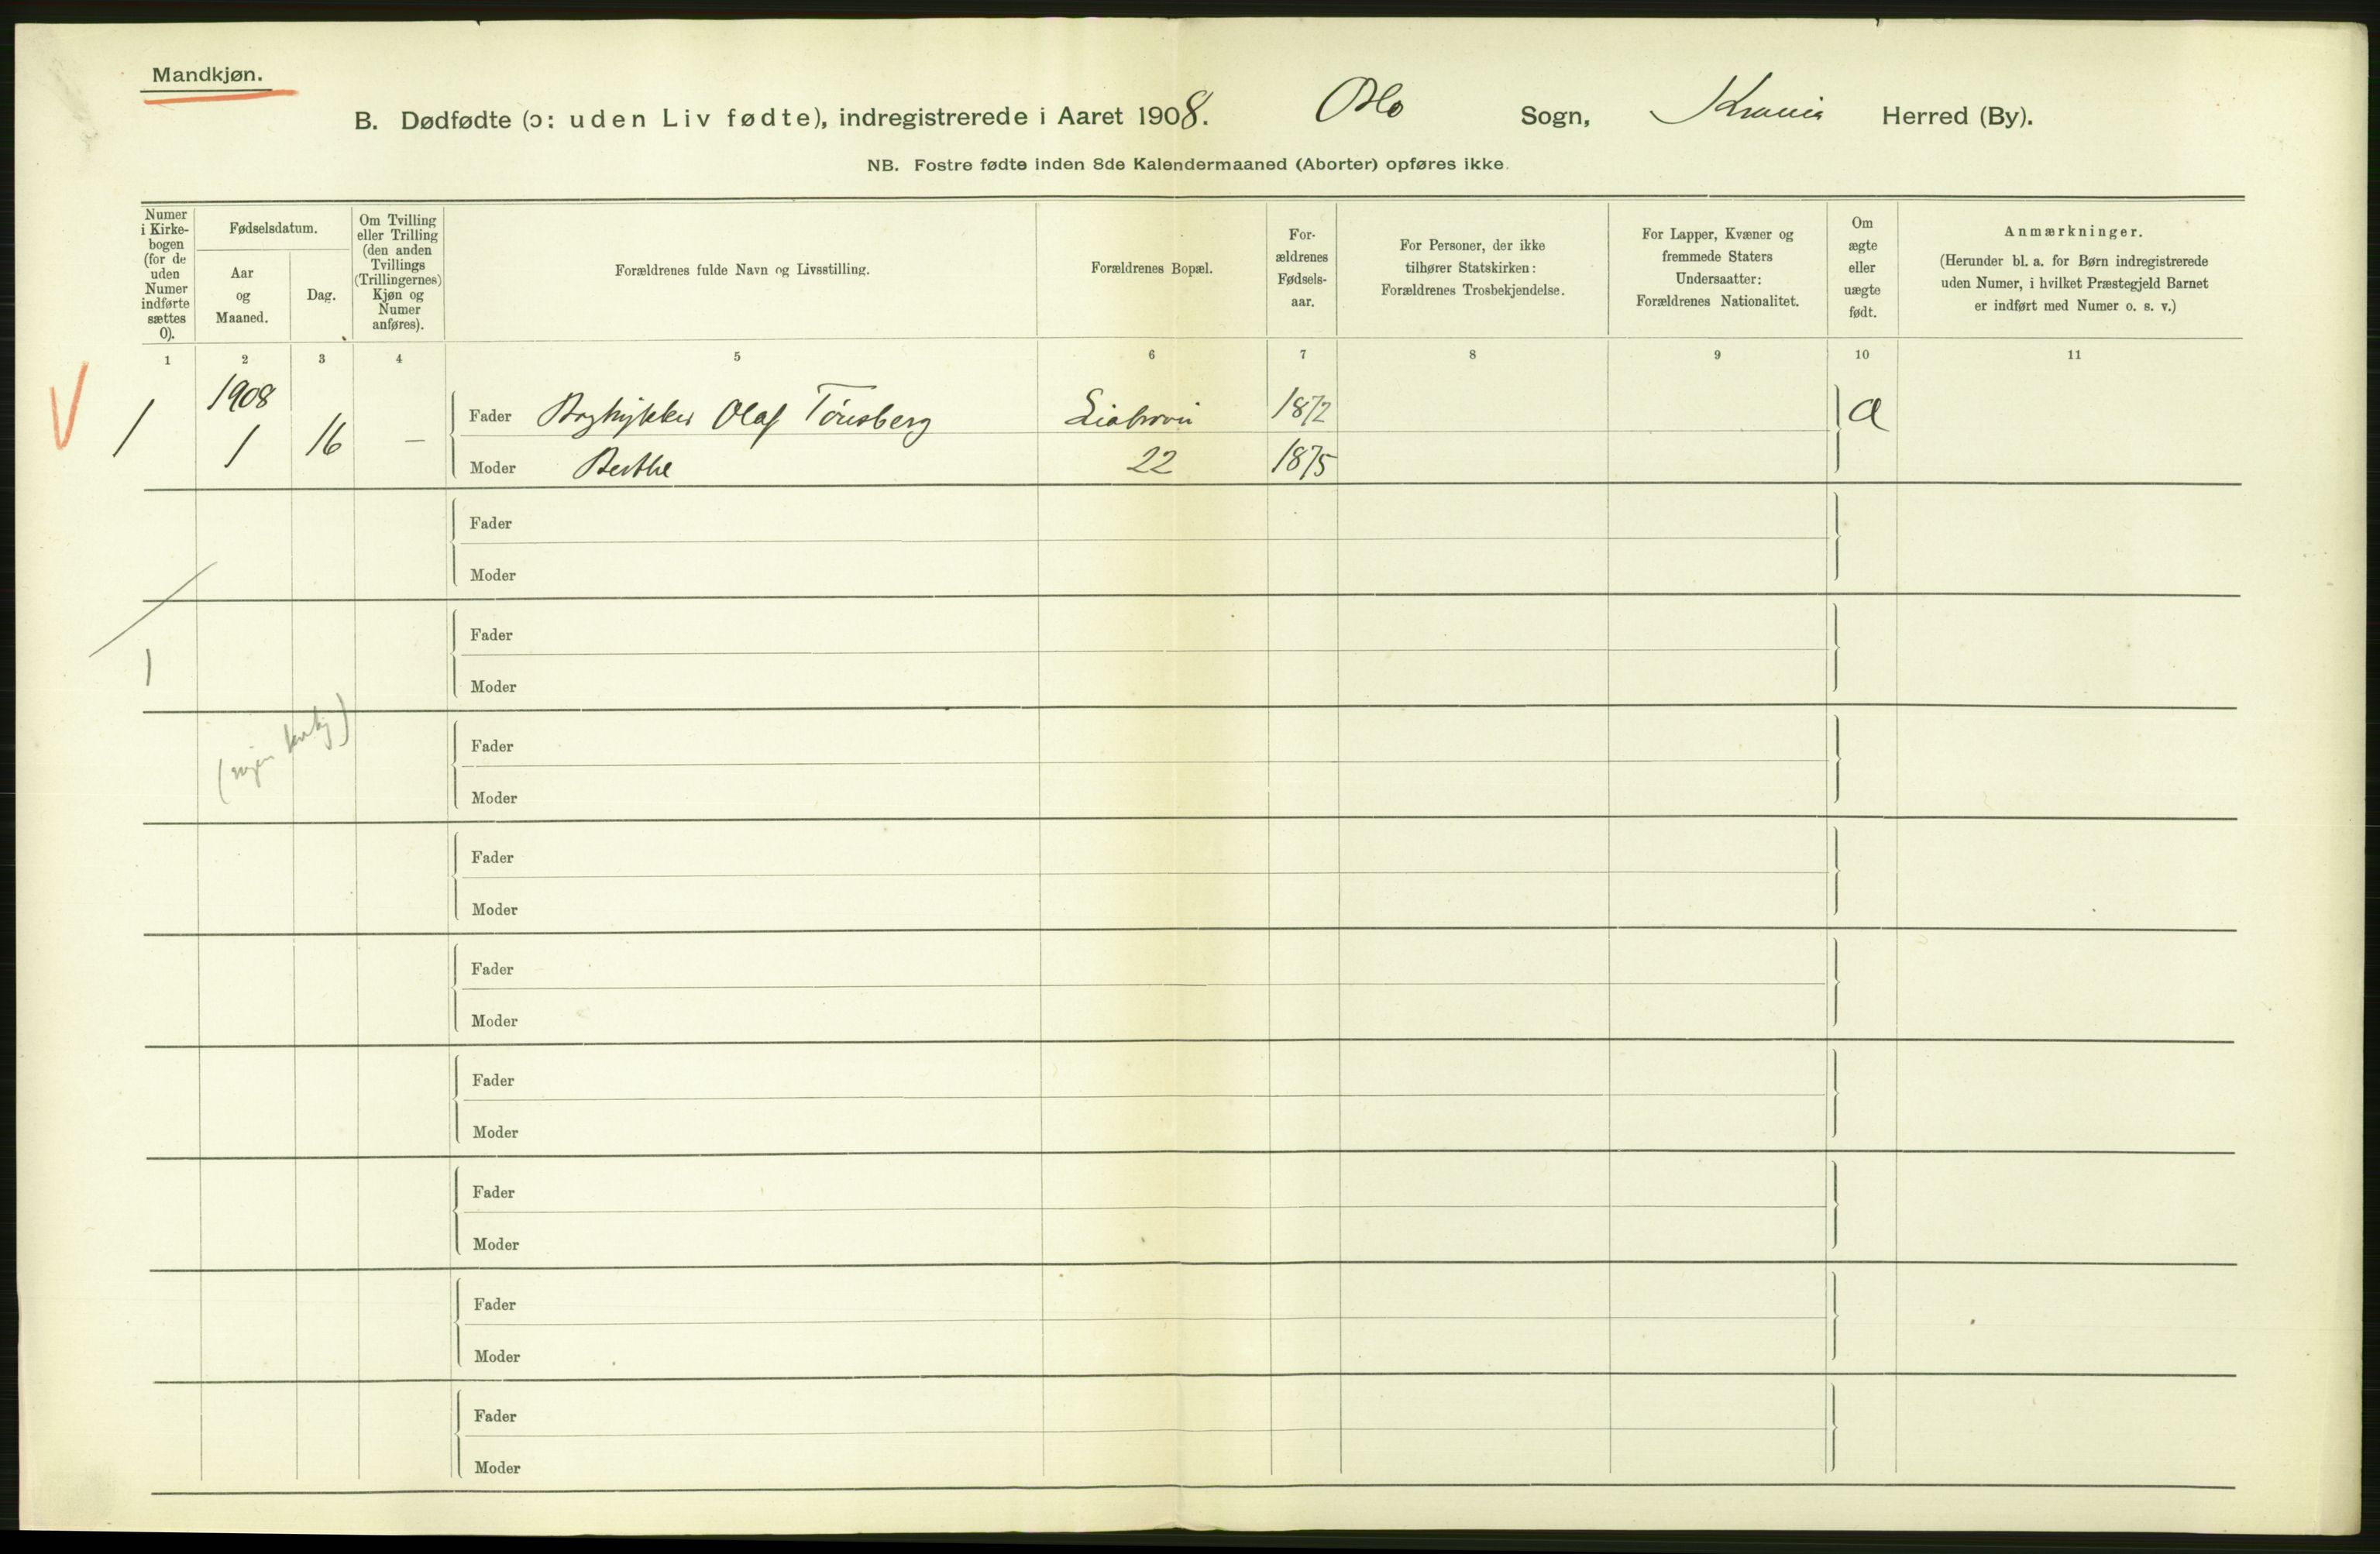 Mandkjøn.
B. Dødfødte (ɔ: uden Liv fødte), indregistrerede i Aaret 1908. Oslo Sogn, Kr.ania Herred (By).
NB. Fostre fødte inden 8de Kalendermaaned (Aborter) opføres ikke.
Numer
i Kirke-
bogen
(for de
uden
Numer
indførte
sættes
0).
Fødselsdatum.
Aar
og
Maaned.
Dag.
Om Tvilling
eller Trilling
(den anden
Tvillings
(Trillingernes)
Kjøn og
Numer
anføres).
Forældrenes fulde Navn og Livsstilling.
Forældrenes Bopæl.
For-
ældrenes
Fødsels-
aar.
For Personer, der ikke
tilhører Statskirken:
Forældrenes Trosbekjendelse.
For Lapper, Kvæner og
fremmede Staters
Undersaatter:
Forældrenes Nationalitet.
Om
ægte
eller
uægte
født.
Anmærkninger.
(Herunder bl. a. for Børn indregistrerede
uden Numer, i hvilket Præstegjeld Barnet
er indført med Numer o. s. v.)
1 2 3 4 5 6 7 8 9 10 11
1908
Fader Bogtrykker Olaf Tönsberg 1872 a
1 1 16 –
Moder Berthe 22 1875
Fader
Moder
Fader
1
Moder
Fader
Moder
Fader
Moder
Fader
Moder
Fader
Moder
Fader
Moder
Fader
Moder
Fader
Moder